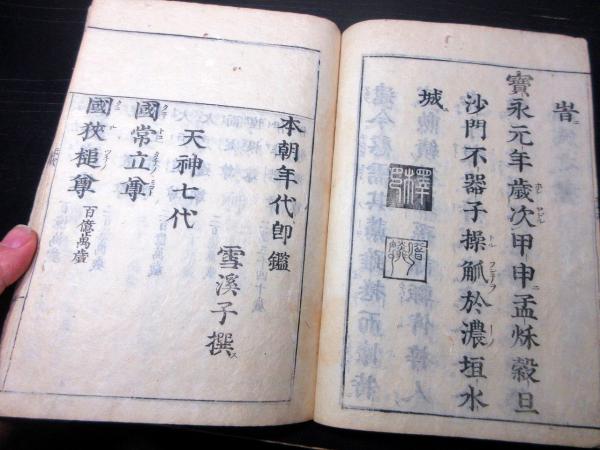 旹
寶永元年歲次甲申孟秌穀旦
沙門不器子操觚於濃垣水
城
本朝年代即鑑
雪溪子撰
天神七代
國常立尊
國狹槌尊 百億萬歲